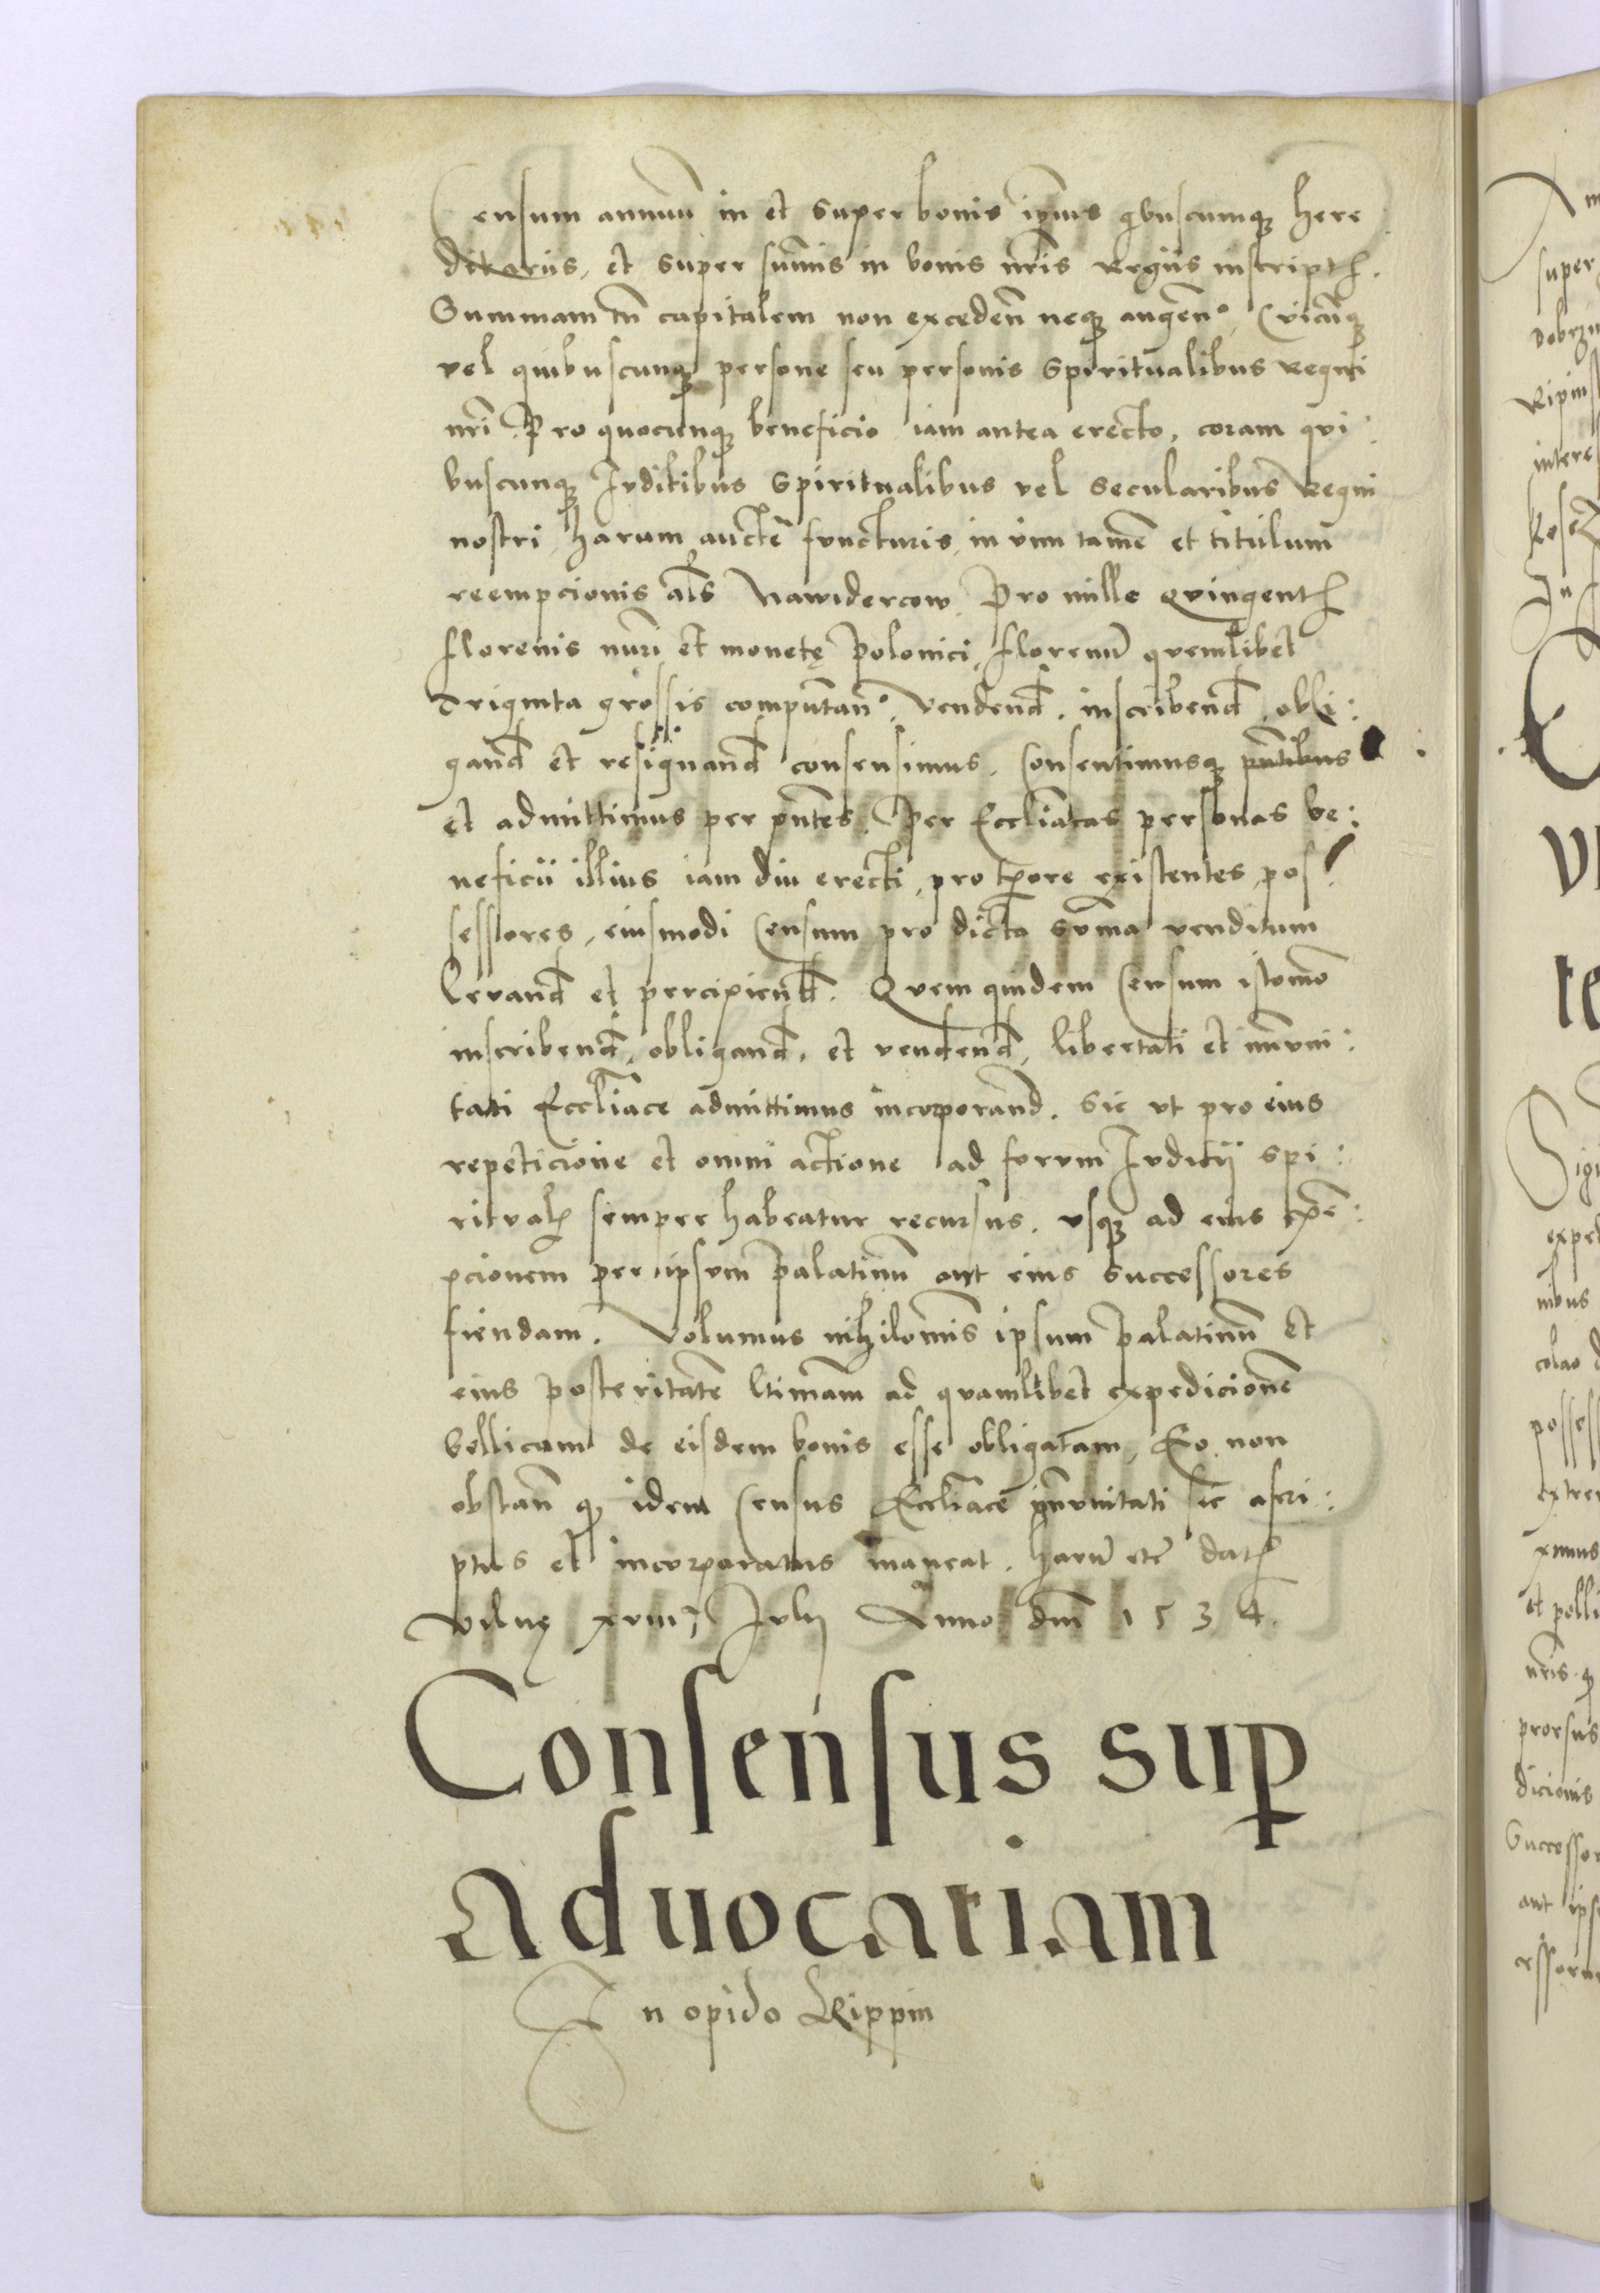 Censum annuū in et super bonis ip̄ius qbuscumq; here
ditariis, et super sum̄is in bonis nr̄is regiis inscript.
Summam tn̄ capitalem non exceden̄ neq; augen. Cuicūq;
vel quibuscunq; persone seu personis spiritualibus Regni
nr̄i. Pro quocunq; beneficio iam antea erecto, coram qui:
buscunq; Iuditibus spiritualibus vel secularibus Regni
nostri harum auctē functuris, in vim tamē et titulum
reempcionis al̄s Nawidercow Pro mille quingent
florenis nūri et monetę polonici, florenū quemlibet
triginta grossis computan. vendend. inscribend, obli:
gand et resignand consensimus. Consentimusq; pn̄tibus
et admittimus per pn̄tes. Per Eccliāticas personas be:
neficii illius iam diu erecti, pro tp̄ore existentes pos
sessores, eiusmodi Censum pro dicta sum̄a venditum
levand et percipiend. Quem quidem Censum istomō
inscribend, obligand, et vendend, libertati et im̄uni:
tati Eccliāce admittimus incorporand. Sic ut pro eius
repeticione et omni actione ad forum Iuditii spi:
ritual semper habeatur recursus. usq; ad eius exē:
pcionem per ipsum palatinū aut eius successores
fiendam. Volumus nihilomīs ipsum palatinū et
eius posteritatē ltimam ad quamlibet expedicionē
bellicam de eisdem bonis esse obligatam, Eo non
obstan̄ q; idem Census Eccliāce im̄unitati sic ascri:
ptus et incorporatus maneat. harū etc̄ dat
Vilnę xviii Iulii Anno dm̄ 1534.
Consensus sup
Aduocatiam
In opido Rippin